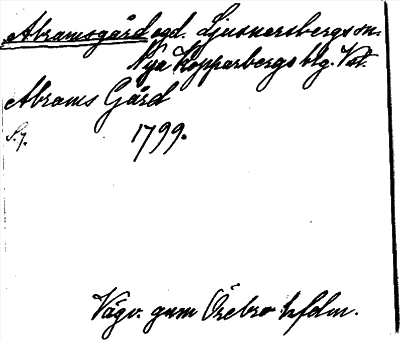 Abramsgård ogd. Ljusnarsbergs sn.
Nya Kopparbergs blg. Vstm.
Abrams Gård
S. 7. 1799.
Vägv. genom Örebro höfdm.